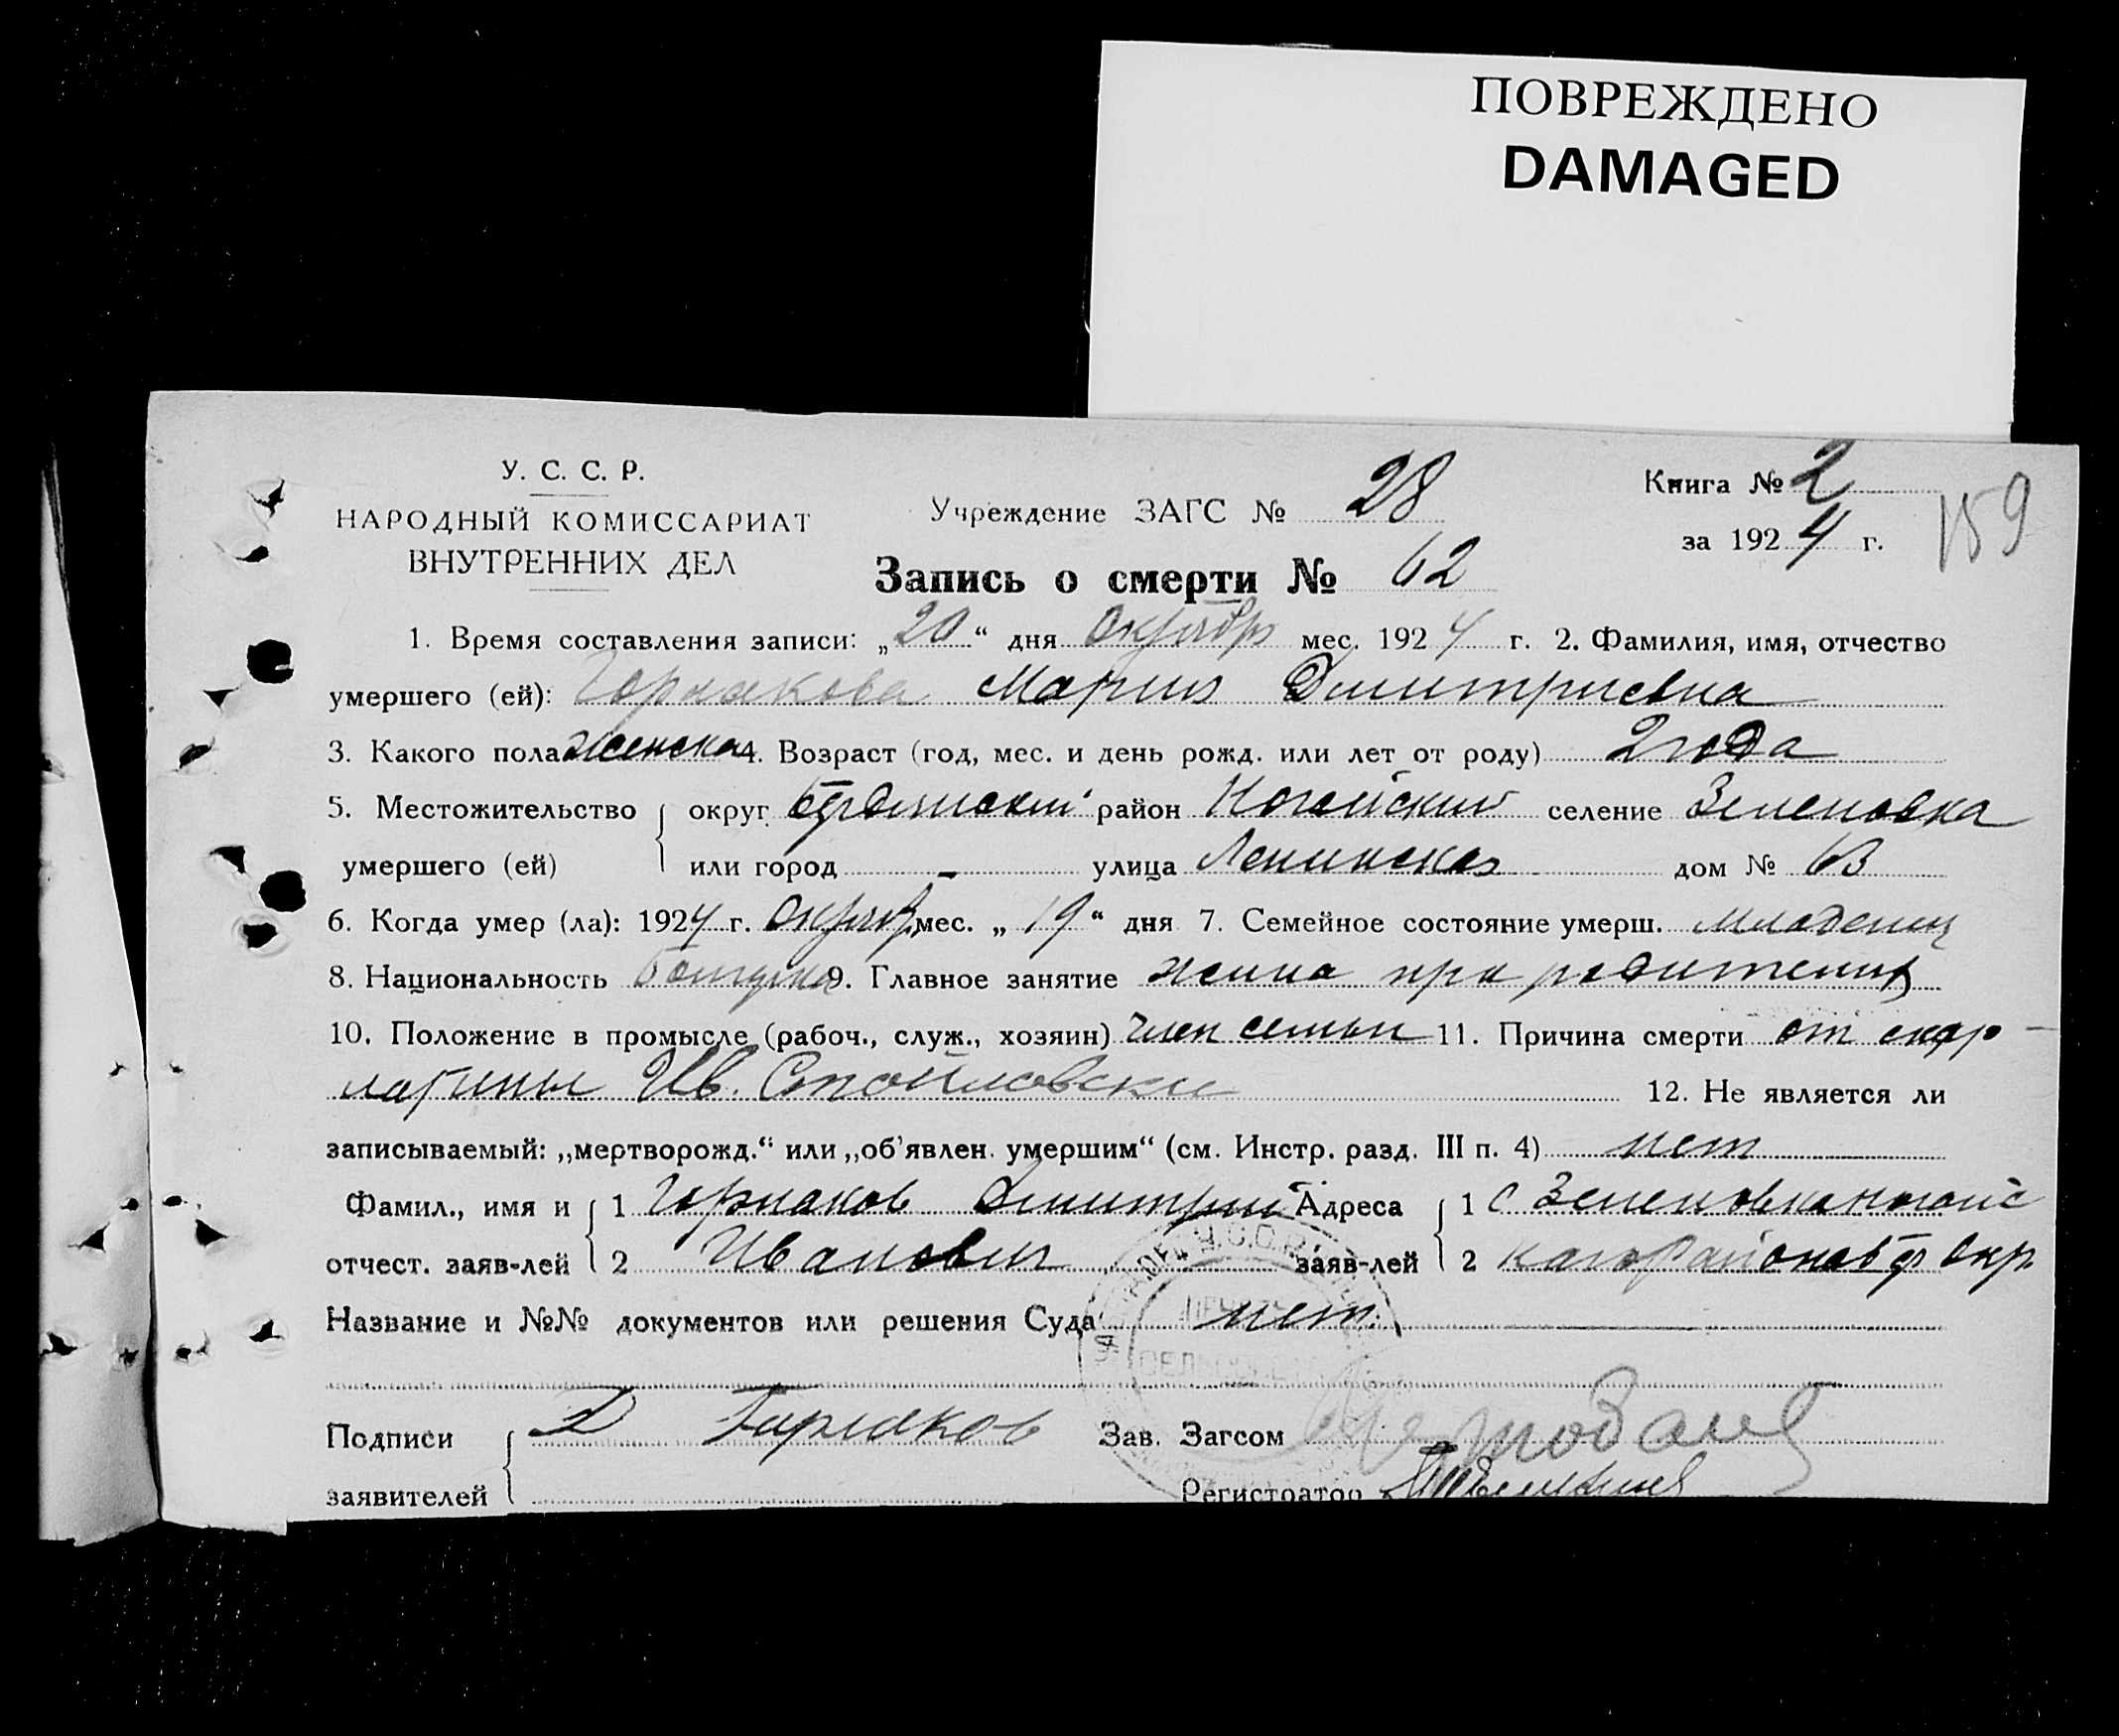 ПОВРЕЖДЕНО
DAMAGED
У. С. С. Р.
НАРОДНЫЙ КОМИССАРИАТ
ВНУТРЕННИХ ДЕЛ
Учреждение ЗАГС № 28
Книга № 2
за 1924 г.
159
Запись о смерти № 62
1. Время составления записи: „20“ дня Октябр мес. 1924 г. 2. Фамилия, имя, отчество
умершего (ей): Мария Дмитриевна
3. Какого пола Женска 4. Возраст (год, мес. и день рожд. или лет от роду) 2 года
5. Местожительство округ район Ногайский селение Зеленовка
умершего (ей) или город - улица Ленинская дом №
6. Когда умер (ла): 1924 г. Октяб. мес. „19“ дня 7. Семейное состояние умерш. Младенец
8. Национальность 9. Главное занятие жила при
10. Положение в промысле (рабоч., служ., хозяин) член семьи 11. Причина смерти от скар-
латины Ив. 12. Не является ли
записываемый: „мертворожд.“ или „об'явлен. умершим“ (см. Инстр. разд. III п. 4) нет
Фамил., имя и 1 Дмитрий Адреса 1 с Зеленовка
отчест. заяв-лей 2 Иванович заяв-лей 2 окр.
Название и №№ документов или решения Суда нет.
Подписи Д Зав. Загсом
заявителей Регистратор